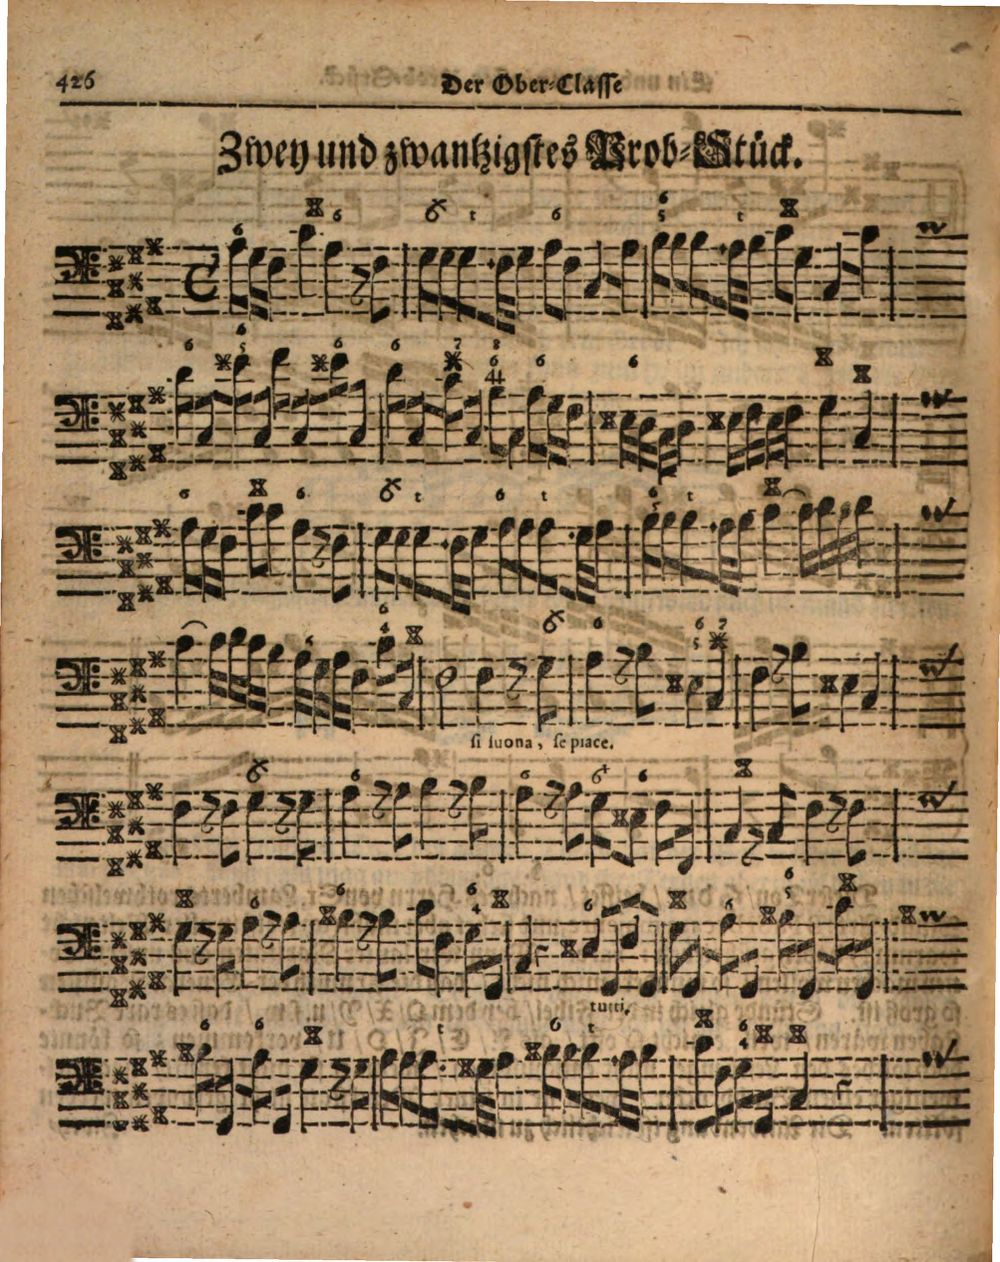 426
Der Ober-Classe
Zwey und zwantzigstes Prob-Stück.
si suona, se piace.
tutti.